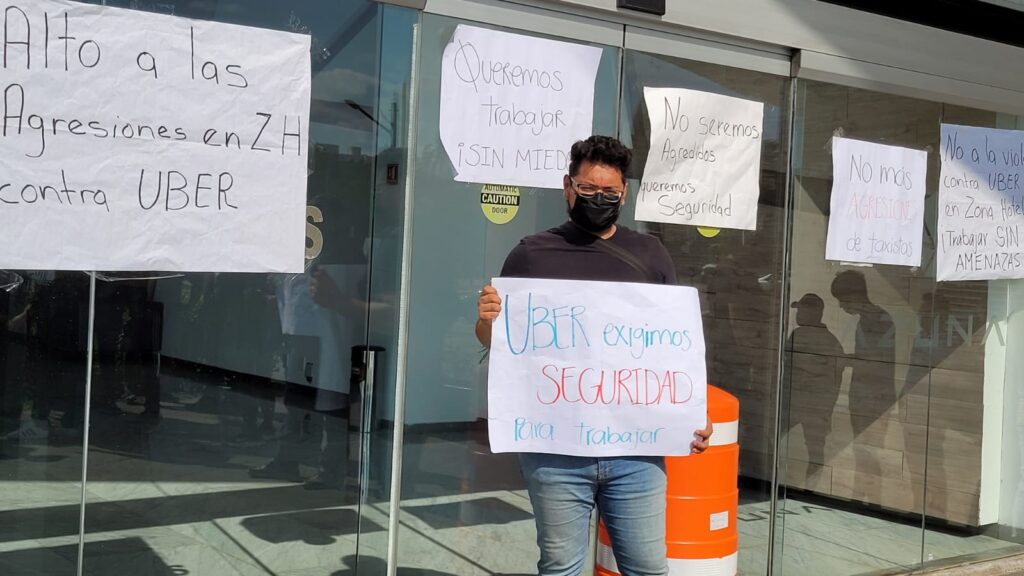 Alto a las
Agresiones en ZH
contra UBER
Queremos
trabajar
¡SIN MIED
AUTOMATIC
CAUTION
DOOR
No seremos
Agredidos
queremos
Seguridad
No más
AGRESIONE
de taxistas
No a la viol
contra UBER
en Zona Hotel
Trabajar SIN
AMENAZAS
UBER exigimos
SEGURIDAD
Para trabajar